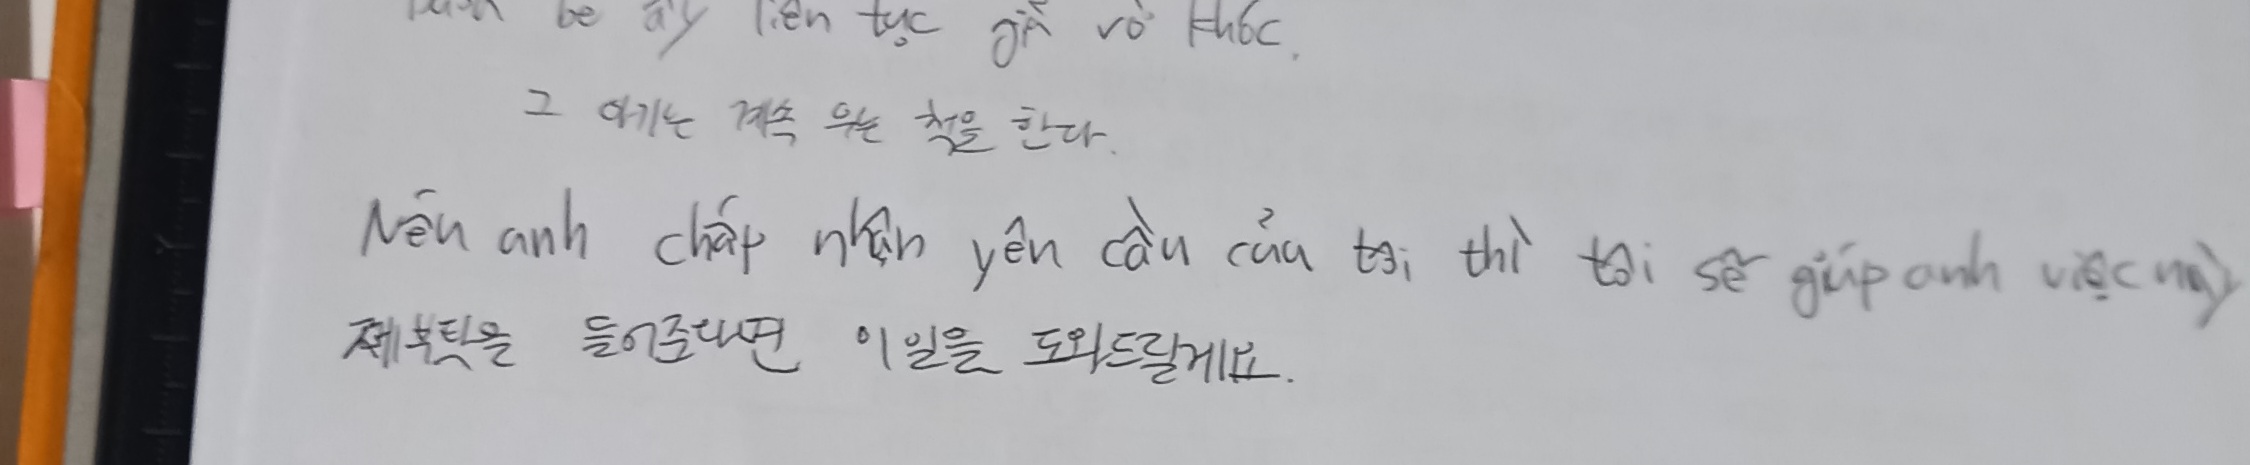 bé ấy liên tục giả vờ khóc.
그 아기는 계속 우는 척을 한다.
Nếu anh chấp nhận yêu cầu của tôi thì tôi sẽ giúp anh việc này
제 부탁을 들어준다면 이 일을 도와드릴게요.